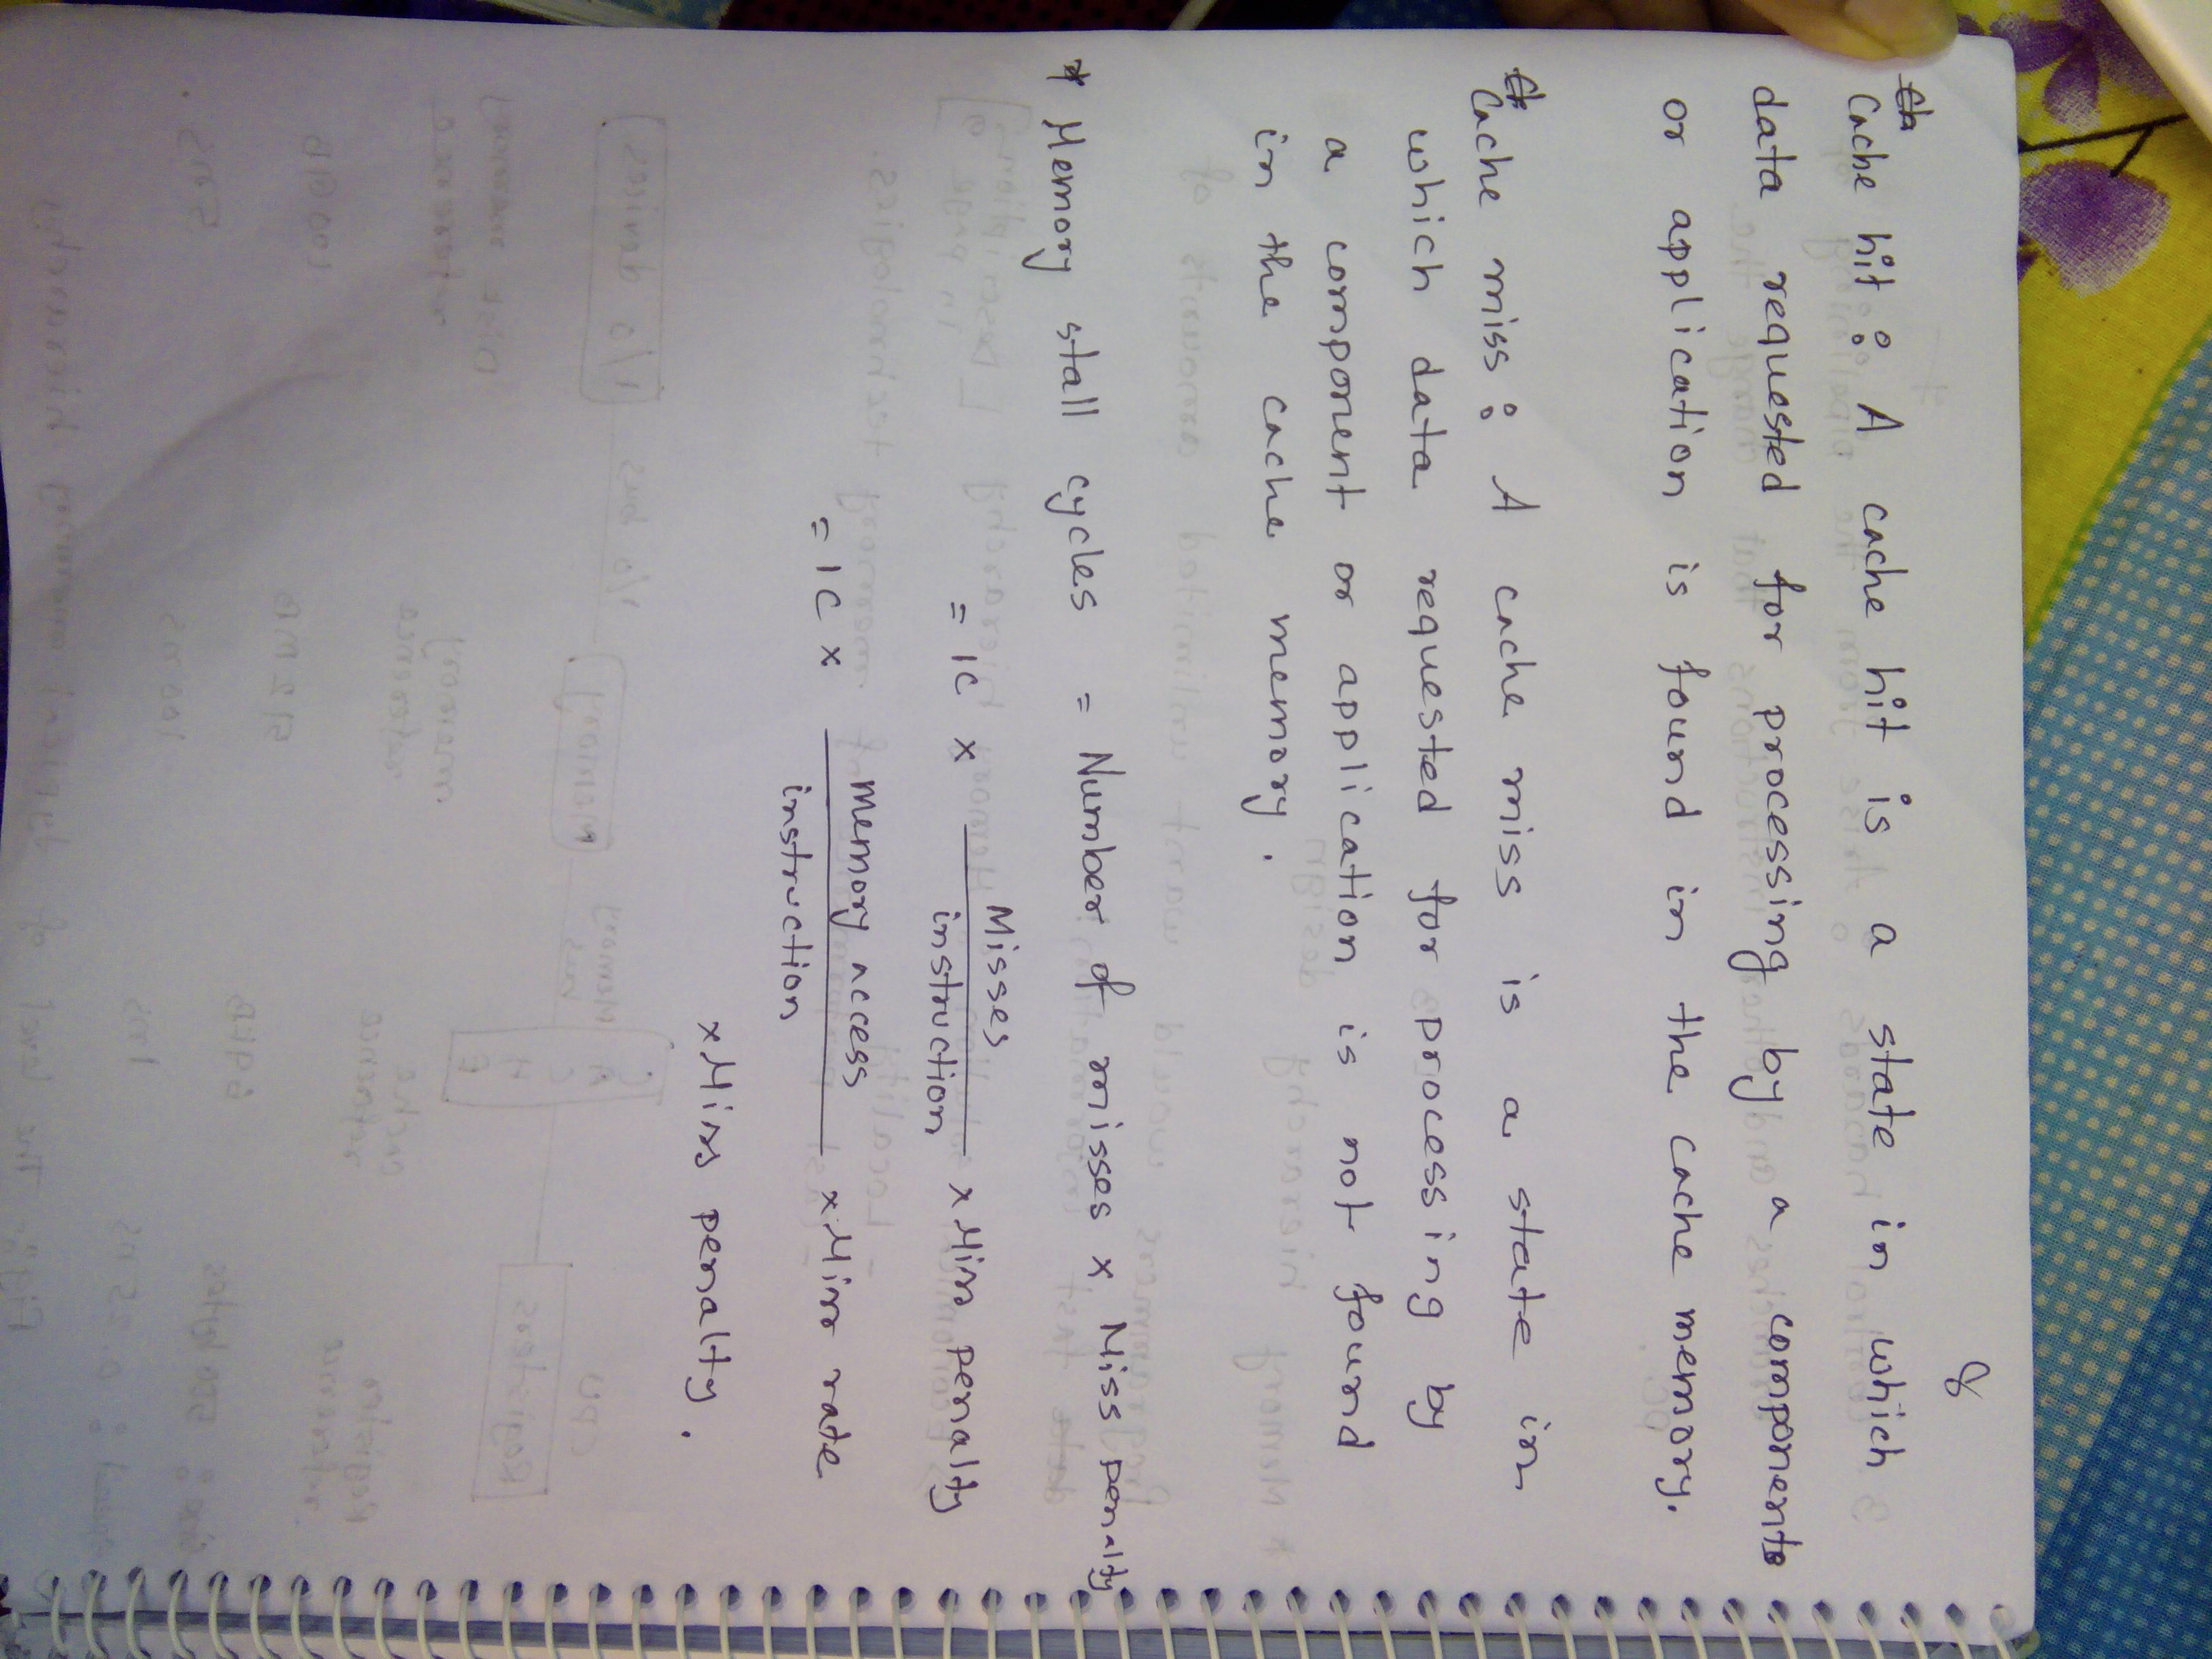 8
Cache hit : A cache hit is a state in which
data requested for processing by a components
or application is found in the cache memory.
Cache miss : A cache miss is a state in
which data requested for processing by
a component or application is not found
in the cache memory.
* Memory stall cycles = Number of misses x Miss penalty
= IC x Misses / instruction x Miss penalty
= IC x memory access / instruction x Miss rate
x Miss penalty.